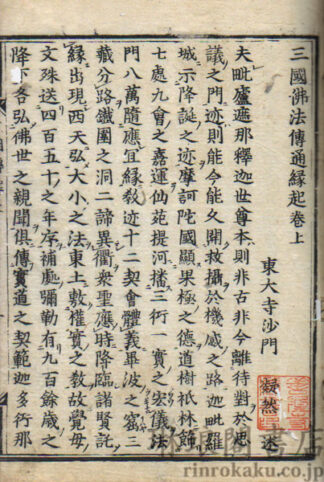 三國佛法傳通緣起卷上
東大寺沙門 凝然 述
夫毗盧遮那釋迦世尊本則非古非今離待對於思
議之門迹則能今能久開救攝於機感之路迦毗羅
城示降誕之迹摩訶陀國顯果極之德道樹祇林飾
七處九會之嘉運仙苑提河播三行一實之宏儀法
門八萬隨應宜緣教迹十二契會體義畢波之窟三
藏分路鐵圍之洞二諦異衢衆聖應時降臨諸賢託
緣出現西天弘大小之法東土敷權實之教故覺母
文殊送四百五十之年序補處彌勒有九百餘歲之
降下各弘佛世之親聞俱傳實道之契範迦多衍那
rinrokaku.co.jp